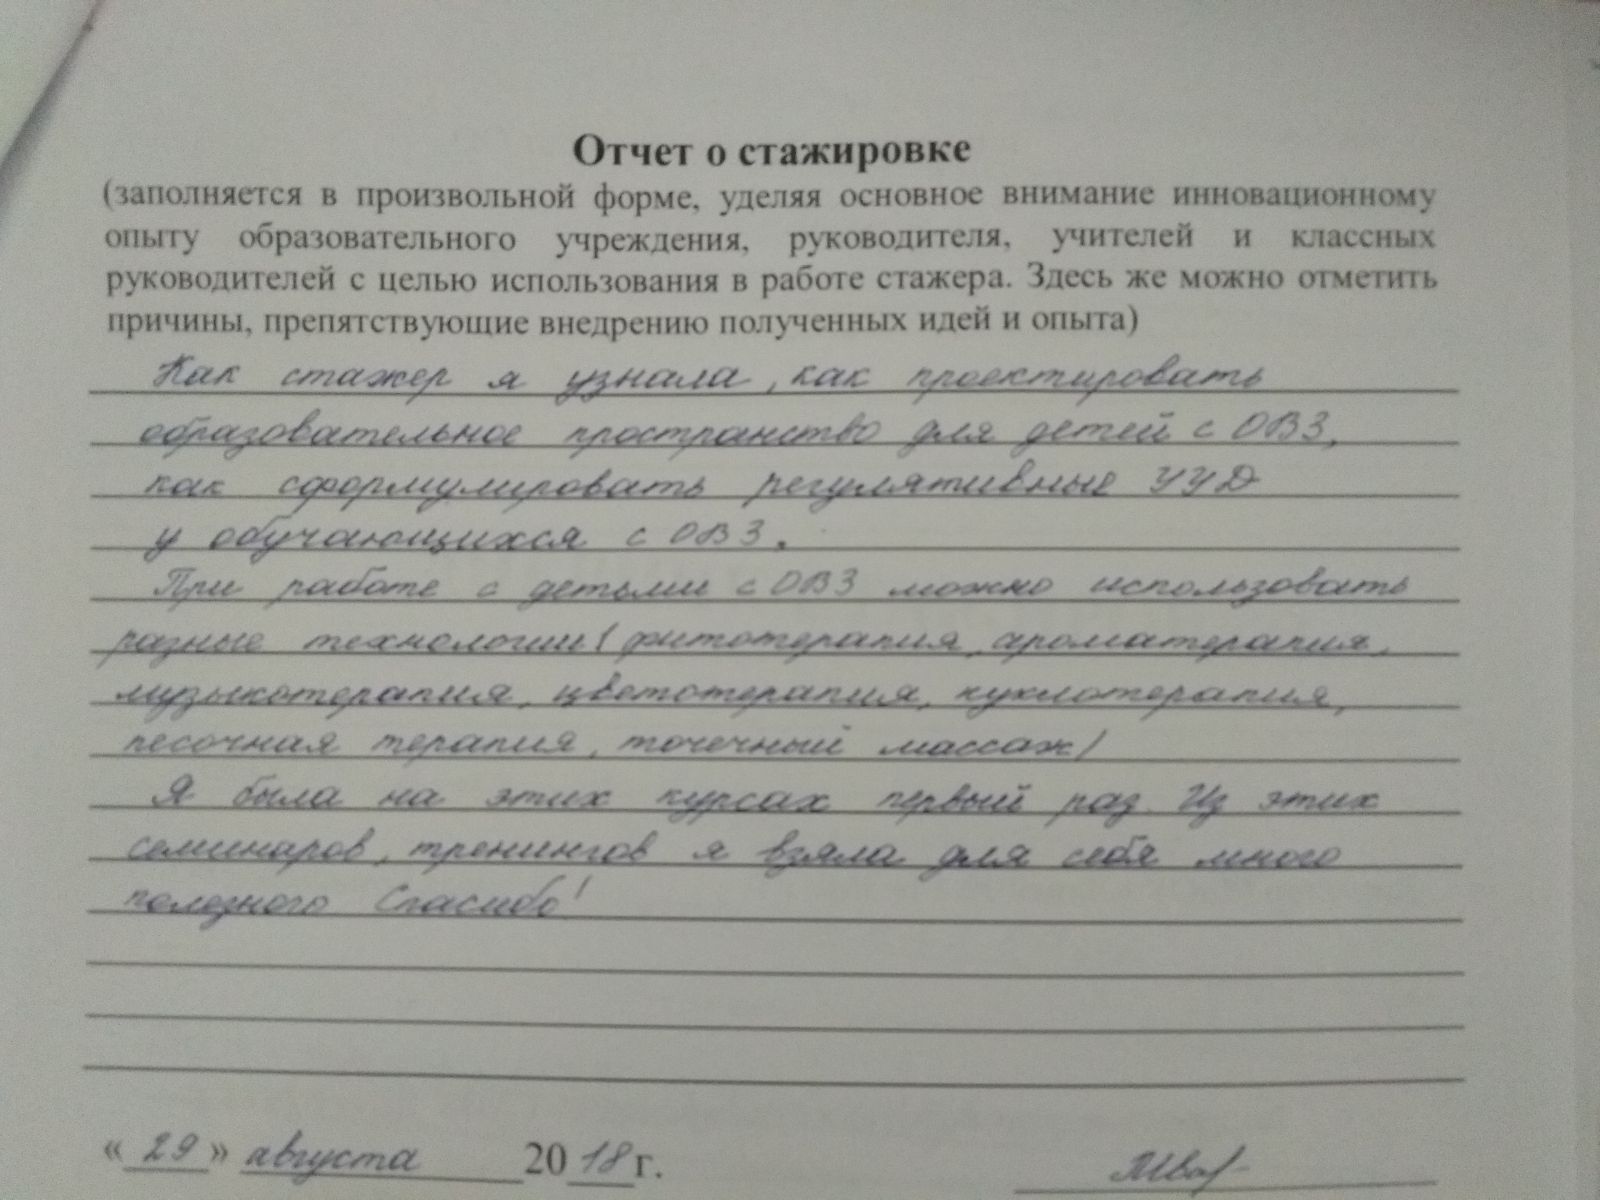 Отчет о стажировке
(заполняется в произвольной форме, уделяя основное внимание инновационному
опыту образовательного учреждения, руководителя, учителей и классных
руководителей с целью использования в работе стажера. Здесь же можно отметить
причины, препятствующие внедрению полученных идей и опыта)
Как стажер я узнала, как проектировать
образовательное пространство для детей с ОВЗ,
как сформулировать регулятивные УУД
у обучающихся с ОВЗ.
При работе с детьми с ОВЗ можно использовать
разные технологии (фитотерапия, ароматерапия,
музыкотерапия, цветотерапия, куклотерапия,
песочная терапия, точечный массаж)
Я была на этих курсах первый раз. Из этих
семинаров, тренингов я взяла для себя много
полезного Спасибо!
«29» августа 2018 г.